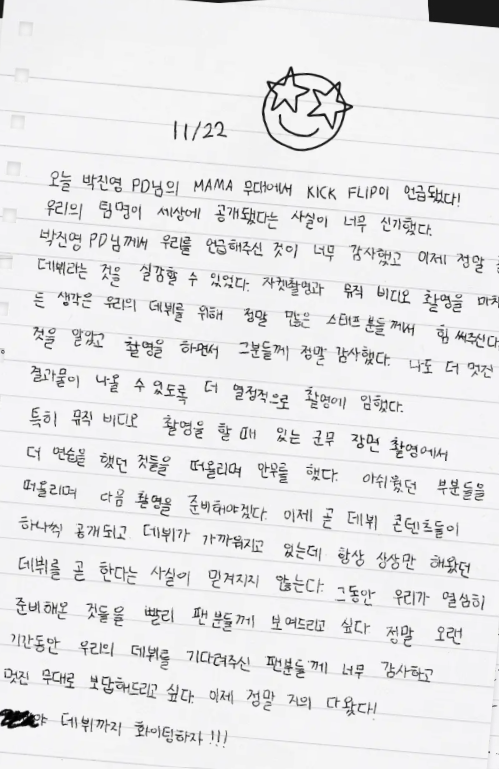 11/22
오늘 박진영 PD님의 MAMA 무대에서 KICK FLIP이 언급됐다!
우리의 팀명이 세상에 공개됐다는 사실이 너무 신기했다.
박진영 PD님께서 우리를 언급해주신 것이 너무 감사했고 이제 정말
데뷔라는 것을 실감할 수 있었다. 자켓촬영과 뮤직 비디오 촬영을 마치
든 생각은 우리의 데뷔를 위해 정말 많은 스태프분들께서 힘써주신다
것을 알았고 촬영을 하면서 그분들께 정말 감사했다. 나도 더 멋진
결과물이 나올 수 있도록 더 열정적으로 촬영에 임했다.
특히 뮤직 비디오 촬영을 할 때 있는 군무 장면 촬영에서
더 연습을 했던 것들을 떠올리며 안무를 했다. 아쉬웠던 부분들을
떠올리며 다음 촬영을 준비해야겠다. 이제 곧 데뷔 콘텐츠들이
하나씩 공개되고 데뷔가 가까워지고 있는데 항상 상상만 해왔던
데뷔를 곧 한다는 사실이 믿겨지지 않는다. 그동안 우리가 열심히
준비해온 것들을 빨리 팬분들께 보여드리고 싶다 정말 오랜
기간동안 우리의 데뷔를 기다려주신 팬분들께 너무 감사하고
멋진 무대로 보답해드리고 싶다. 이제 정말 거의 다왔다!
야 데뷔까지 화이팅하자!!!